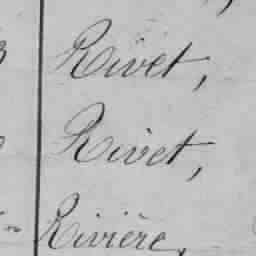 Rivet,
Rivet,
Rivière,